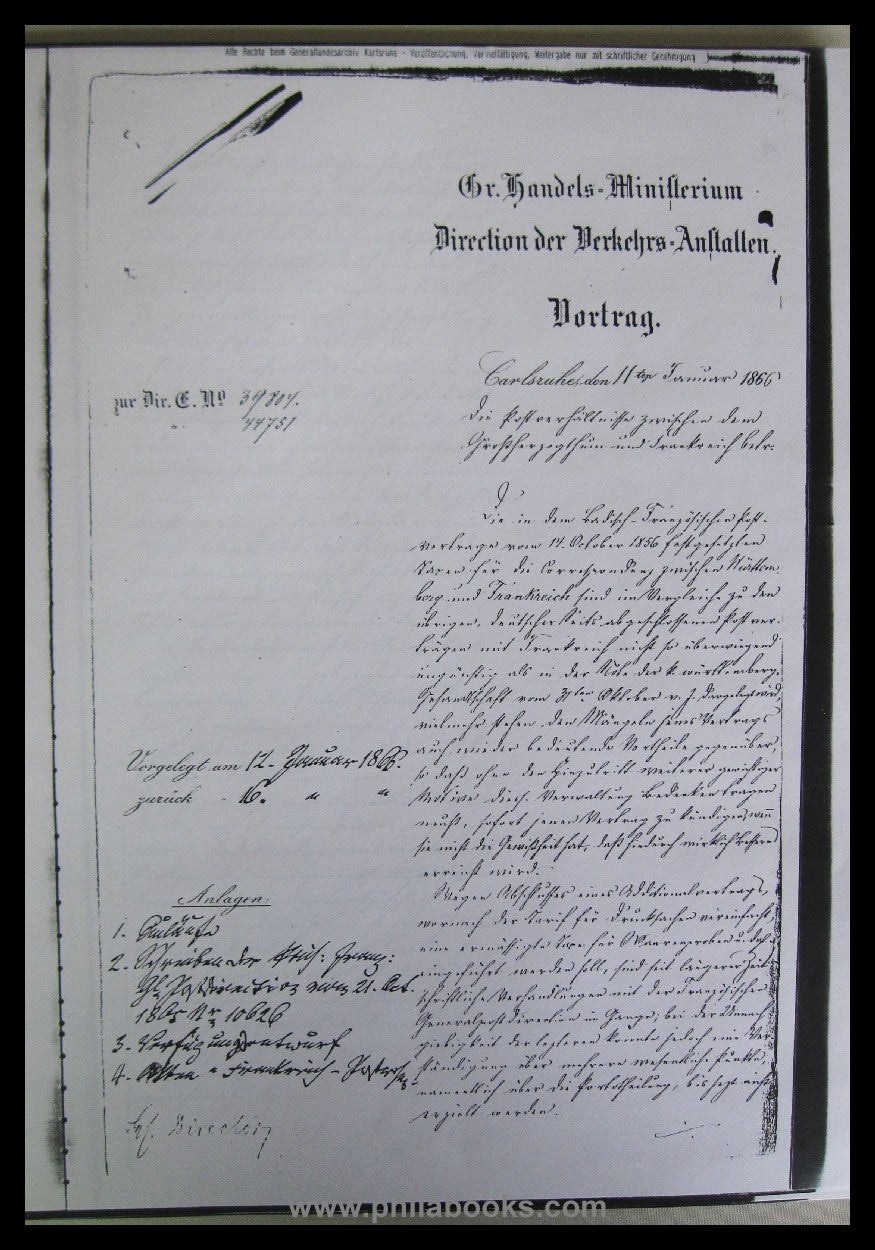 Alle Rechte beim Generallandesarchiv Karlsruhe - Veröffentlichung, Vervielfältigung, Weitergabe nur mit schriftlicher Genehmigung
Gr. Handels-Ministerium
Direction der Verkehrs-Anstalten.
Vortrag.
Carlsruhe, den 11ten Januar 1866
zur Dir. E. No 39804.
" 44751
Die Postverhältnisse zwischen dem
Großherzogthum und Frankreich betr.
Die in dem Badisch-Französischen Post-
vertrage vom 14. October 1856 festgesetzten
Taxen für die Correspondenz zwischen Württem-
berg und Frankreich sind im Vergleiche zu den
übrigen, deutscher Seits abgeschlossenen Postver-
trägen mit Frankreich nicht so überwiegend
ungünstig als in der Note der k. württemberg.
Gesandtschaft vom Oktober v. J. dargelegt wird,
vielmehr stehen den Mängeln jenes Vertrags
auch wieder bedeutende Vortheile gegenüber,
so daß ohne den Hinzutritt weiterer gewichtiger
Motive dies. Verwaltung Bedenken tragen
muß, sofort jenen Vertrag zu kündigen, wenn
sie nicht die Gewißheit hat, daß hiedurch wirklich Besseres
erreicht wird.
Vorgelegt am 12. Januar 1866.
zurück " 16. " "
Wegen Abschlusses eines Additionalvertrags,
wornach der Tarif für Drucksachen vereinfacht,
eine ermäßigte Taxe für Waarenproben u. dgl.
eingeführt werden soll, sind seit längerer Zeit
schriftliche Verhandlungen mit der Französischen
Generalpostdirection im Gange; bei der Unnach-
giebigkeit der letzteren konnte jedoch eine Ver-
ständigung über mehrere wesentliche Punkte,
namentlich über die Portotheilung, bis jetzt nicht
erzielt werden.
Anlagen:
1. Einläufe
2. Schreiben der franz:
Gl. Postdirection vom 21. Oct.
1865 Nr. 10626
3. Verfügungsentwurf
4. Akten " Frankreich - Postverh
Direction
www.philabooks.com